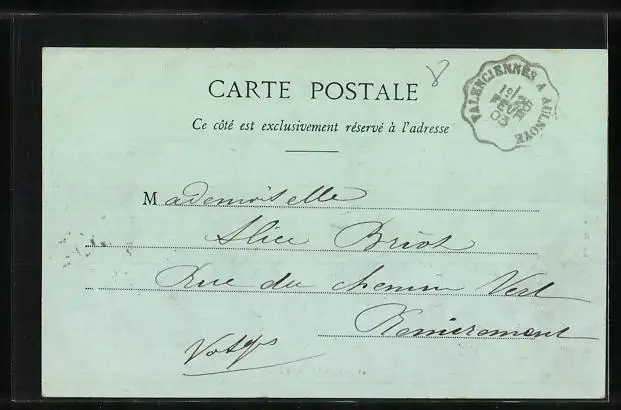 CARTE POSTALE
VALENCIENNES A AULNOYE
Ce côté est exclusivement réservé à l'adresse
Mademoiselle
Alice Briot
Rue du chemin Vert
Remiremont
Vosges